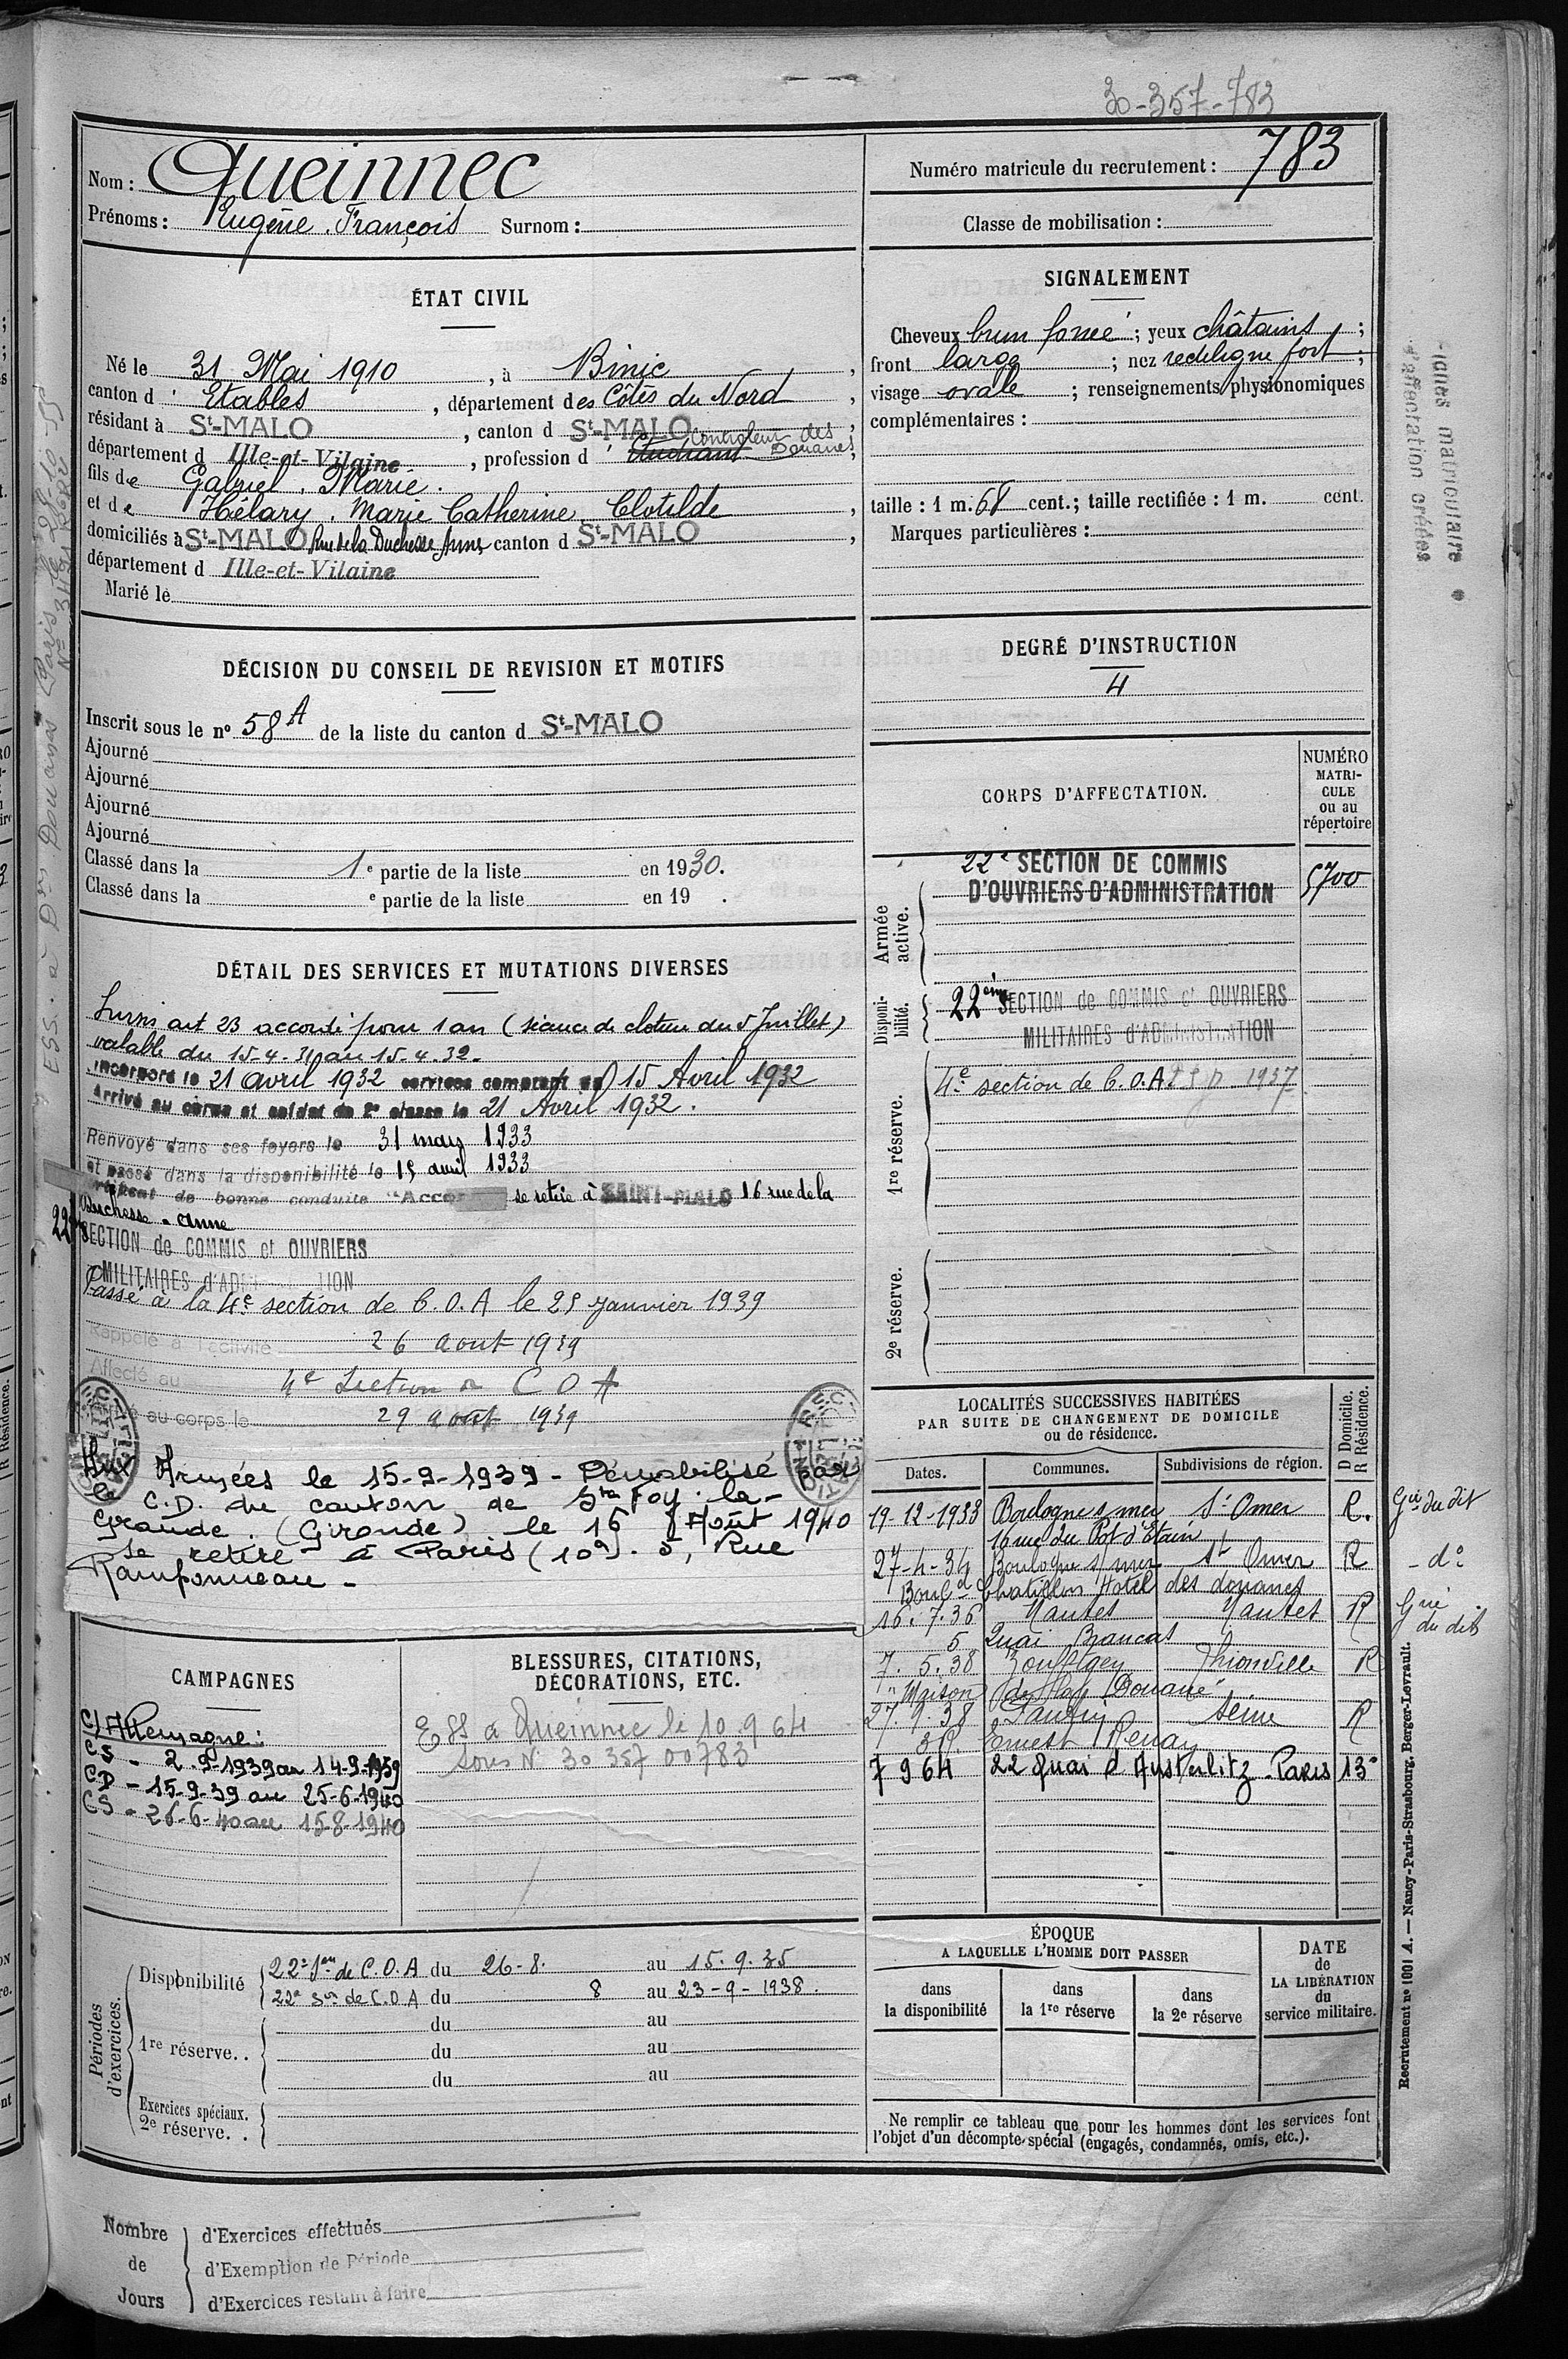 30-357-783
Nom : Queinnec
Prénoms : Eugène François Surnom :
Numéro matricule du recrutement : 783
Classe de mobilisation :
ÉTAT CIVIL
Né le 31 Mai 1910, à Binic,
canton d' Etables, département des Côtes du Nord,
résidant à St-MALO, canton d St-MALO,
Controleur des
département d Ille-et-Vilaine, profession d' Etudiant Douanes,
fils de Gabriel. Marie.
et de Hélary. Marie Catherine Clotilde,
domiciliés à St-MALO Rue de la Duchesse Anne canton d St-MALO,
département d Ille-et-Vilaine
Marié le
SIGNALEMENT
Cheveux brun foncé ; yeux châtains ;
front large ; nez rectiligne fort ;
visage ovale ; renseignements physionomiques
complémentaires :
taille : 1 m. 68 cent.; taille rectifiée : 1 m. cent.
Marques particulières :
DÉCISION DU CONSEIL DE REVISION ET MOTIFS
Inscrit sous le no 58 A de la liste du canton d St-MALO
Ajourné
Ajourné
Ajourné
Ajourné
Classé dans la 1e partie de la liste en 1930.
Classé dans la e partie de la liste en 19 .
DEGRÉ D'INSTRUCTION
4
CORPS D'AFFECTATION.
NUMÉRO
MATRI-
CULE
ou au
répertoire
Armée
active.
22e SECTION DE COMMIS
D'OUVRIERS D'ADMINISTRATION
5700
Disponi-
bilité.
22ème SECTION de COMMIS et OUVRIERS
MILITAIRES d'ADMINISTRATION
1re réserve.
4e section de C.O.A
2e réserve.
DÉTAIL DES SERVICES ET MUTATIONS DIVERSES
Sursis art 23 accordé pour 1 an (séance de cloture du 5 Juillet)
valable du 15-4-31 au 15-4-32.
Incorporé le 21 avril 1932 services comptant du 15 Avril 1932
Arrivé au corps et soldat de 2e classe le 21 Avril 1932.
Renvoyé dans ses foyers le 31 mars 1933
et passé dans la disponibilité le 15 avril 1933
de bonne conduite "Accor se retire à SAINT-MALO 16 rue de la
Duchesse-Anne
22e SECTION de COMMIS et OUVRIERS
MILITAIRES d'AD TION
Passé à la 4e section de C.O.A le 25 janvier 1939
Rappelé à l'activité 26 aout 1939
Affecté au 4e Section de C O A
Arrivé au corps le 29 aout 1939
Aux Armées le 15-9-1939 - Démobilisé par
le C.D. du canton de Ste Foy-la-
Grande. (Gironde) le 16 Août 1940
Se retire à Paris (10e). 5, Rue
Ramponneau -
LOCALITÉS SUCCESSIVES HABITÉES
PAR SUITE DE CHANGEMENT DE DOMICILE
ou de résidence.
D Domicile.
R Résidence.
Dates. Communes. Subdivisions de région.
19-12-1933 Boulogne s/mer St Omer R. Gie du dit
16 rue du Pot d'étain
27-4-34 Boulogne s/mer St Omer R - do
Bould Chatillon Hotel des douanes
16.7.36 Nantes Nantes R Gie du dit
5 Quai Brancas
7.5.38 Zoufftgen Thionville R
"Maison de la Douane"
27.9.38 Pantin Seine R
3 R. Ernest Renan
7 9 64 22 quai d'Austerlitz-Paris 13e
CAMPAGNES
C/ Allemagne :
CS - 2.9-1939 au 14-9-1939
CD - 15-9-39 au 25-6-1940
CS - 26-6-40 au 15-8-1940
BLESSURES, CITATIONS,
DÉCORATIONS, ETC.
ESS à Queinnec le 10.9 64
sous No 30 357 00783
Périodes
d'exercices.
Disponibilité
22e Son de C.O.A du 26-8. au 15.9.35
22e Son de C.O.A du 8 au 23-9-1938.
1re réserve..
du au
du au
du au
Exercices spéciaux.
2e réserve. .
ÉPOQUE
A LAQUELLE L'HOMME DOIT PASSER
dans
la disponibilité
dans
la 1re réserve
dans
la 2e réserve
DATE
de
LA LIBÉRATION
du
service militaire.
Ne remplir ce tableau que pour les hommes dont les services font
l'objet d'un décompte spécial (engagés, condamnés, omis, etc.).
Nombre
de
Jours
d'Exercices effectués
d'Exemption de Période
d'Exercices restant à faire
Recrutement no 1001 A. — Nancy-Paris-Strasbourg, Berger-Levrault.
matriculaire
d'affectation créées